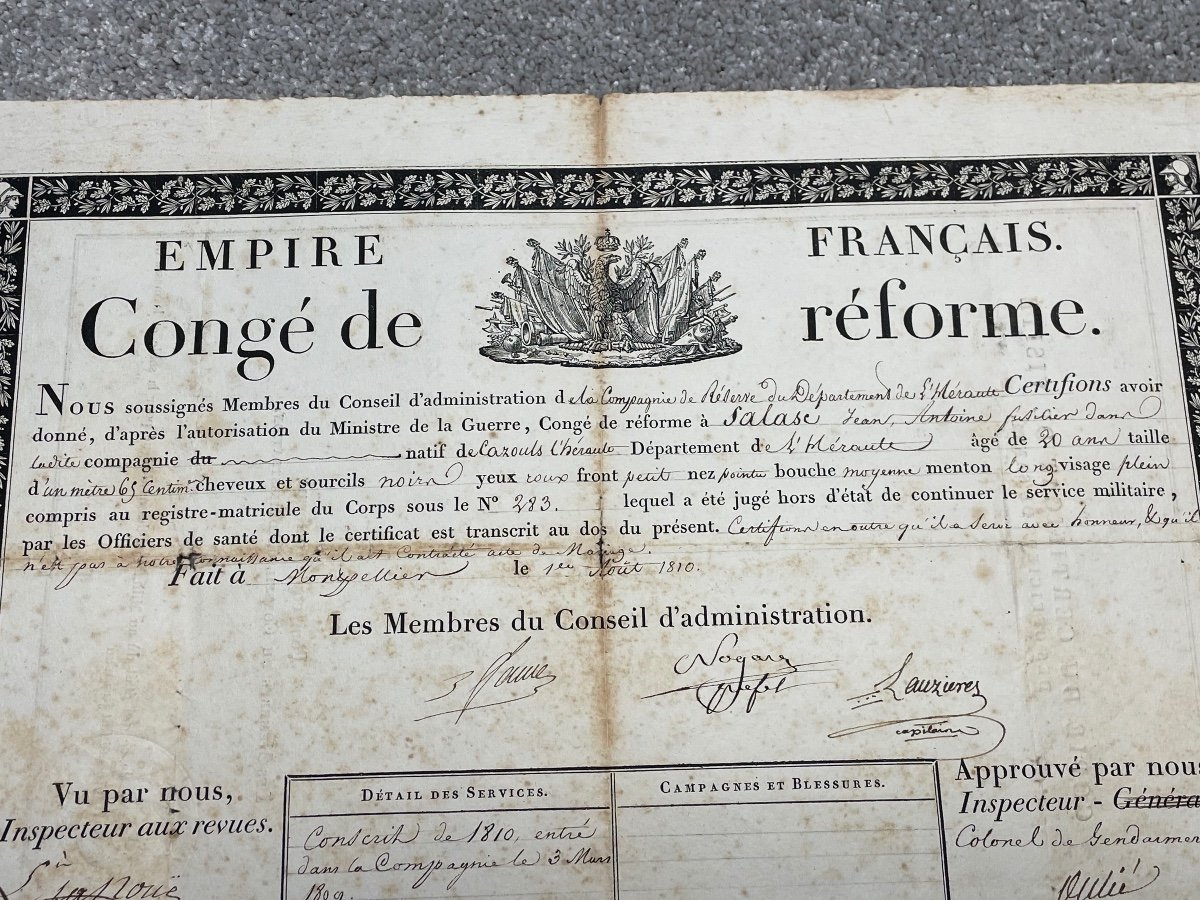 EMPIRE FRANÇAIS.
Congé de réforme.
Nous soussignés Membres du Conseil d'administration de la Compagnie de Réserve du Département de L'Hérault Certifions avoir
donné, d'après l'autorisation du Ministre de la Guerre, Congé de réforme à Salasc Jean, Antoine fusilier dans
ladite compagnie du natif de Cazouls L'hérault Département de L'Hérault âgé de 20 ans taille
d'un mètre 65 Centim. cheveux et sourcils noirs yeux roux front petit nez pointu bouche moyenne menton long visage plein
compris au registre-matricule du Corps sous le Nº 283. lequel a été jugé hors d'état de continuer le service militaire,
par les Officiers de santé dont le certificat est transcrit au dos du présent. Certifions en outre qu'il a Servi avec honneur, & qu'il
n'est pas à notre Connaissance qu'il ait Contracté acte de Mariage.
Fait à Montpellier le 1er Août 1810.
Les Membres du Conseil d'administration.
Nogaret
Préfet
Lauzieres
capitaine
Vu par nous,
Inspecteur aux revues.
Approuvé par nous
Inspecteur - Généra
Colonel de Gendarmer
DÉTAIL DES SERVICES.
CAMPAGNES ET BLESSURES.
Conscrit de 1810, entré
dans la Compagnie le 3 Mars
1809